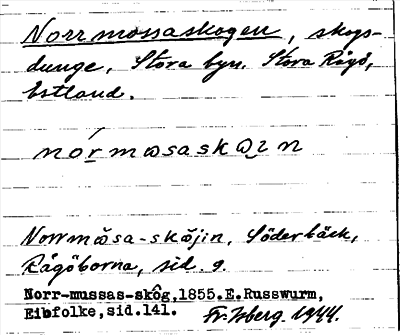 Norrmossaskogen, skogs-
dunge, Stora byn, Stora Rågö,
Estland.
nórmɷsaskɷ̯in
Norrmåsa-skåjin, Söderbäck,
Rågöborna, sid. 9.
Norr-mussas-skôg,1855.E.Russwurm,
Eibfolke,sid.141.
Fr. Isberg 1944.